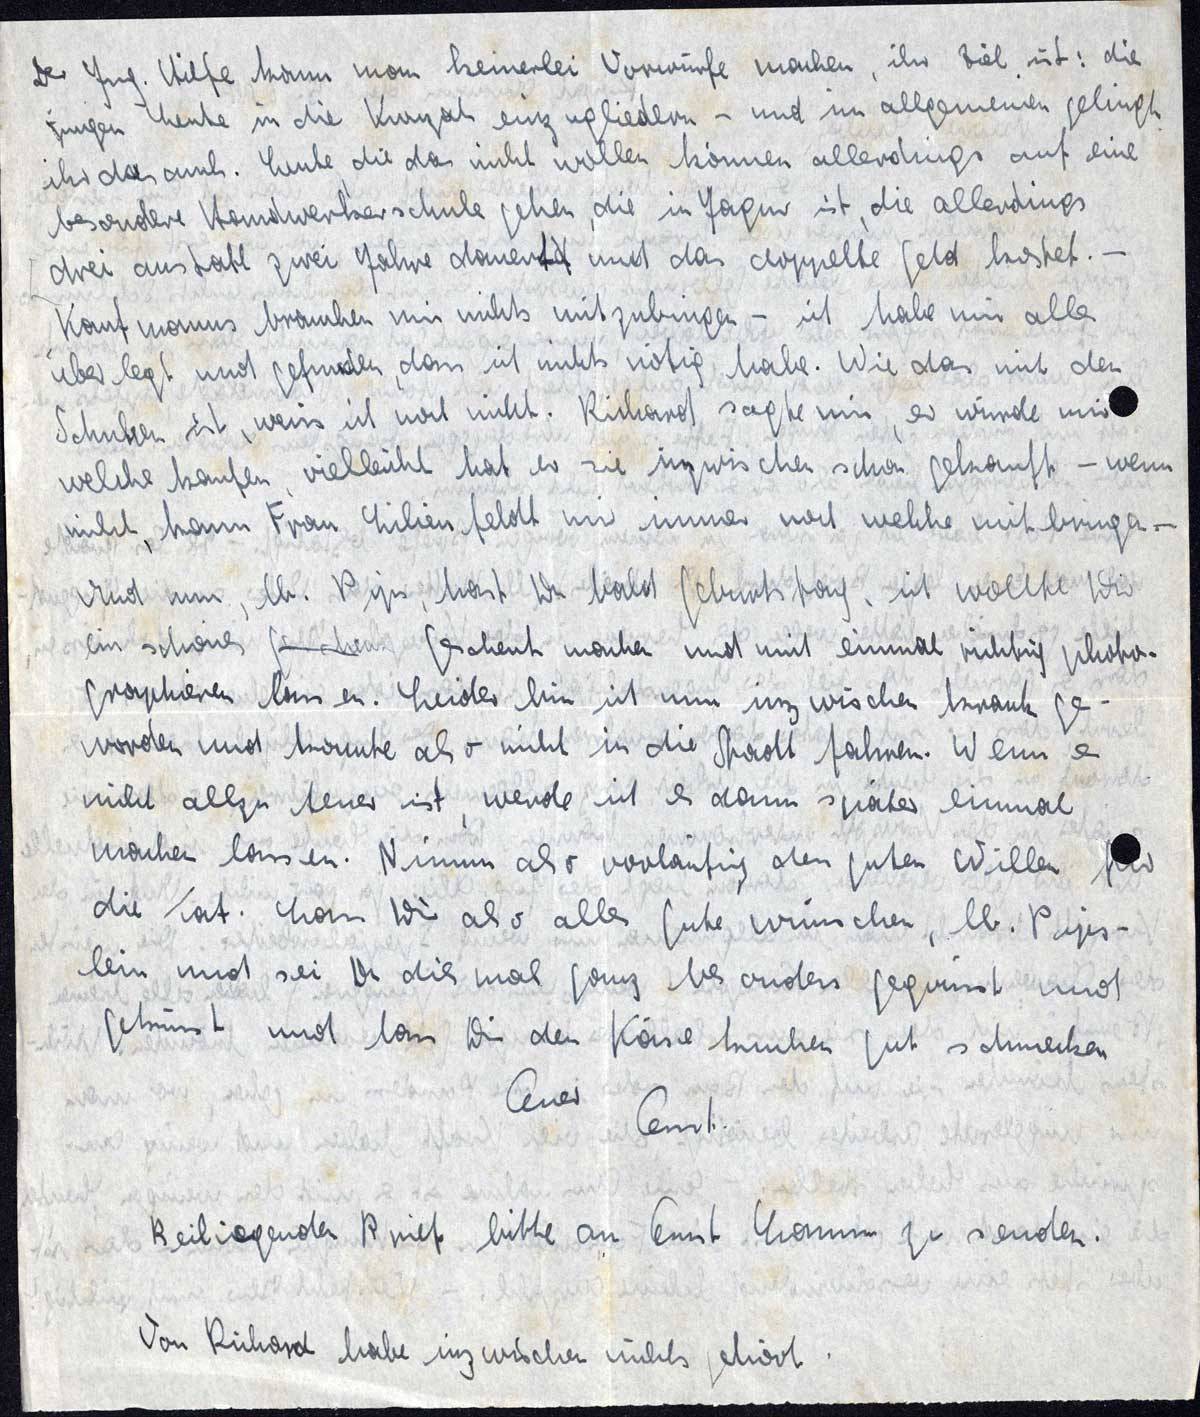 Der Jug. Hilfe kann man keinerlei Vorwürfe machen, ihr Ziel ist: die
jungen Leute in die Kwuzah einzugliedern – und im allgemeinen gelingt
ihr das auch. Leute, die das nicht wollen können allerdings auf eine
besondere Handwerkerschule gehen, die in Jagur ist, die allerdings
drei anstatt zwei Jahre dauert und das doppelte Geld kostet. –
Kaufmanns brauchen mir nichts mitzubringen – ich habe mir alles
überlegt und gefunden, dass ich nichts nötig habe. Wie das mit den
Schuhen ist, weiss ich noch nicht. Richard sagte mir, er würde mir
welche kaufen, vielleicht hat er sie inzwischen schon gekauft – wenn
nicht, kann Frau Lilienfeldt mir immer noch welche mitbringen –
Und nun, lb. Pips, hast Du bald Geburtstag, ich wollte Dir
ein schönes Geschenk machen und mich einmal richtig photo-
graphieren lassen. Leider bin ich nun inzwischen krank ge-
worden und konnte also nicht in die Stadt fahren. Wenn es
nicht allzu teuer ist, werde ich es dann später einmal
machen lassen. Nimm also vorläufig den guten Willen für
die Tat. Lass Dir also alles gute wünschen, lb. Pips-
lein und sei Du diesmal ganz besonders gegrüsst und
geküsst und lass Dir den Käsekuchen gut schmecken
Euer Ernst.
Beiliegenden Brief bitte an Ernst Hamm zu senden.
Von Richard habe inzwischen nichts gehört.